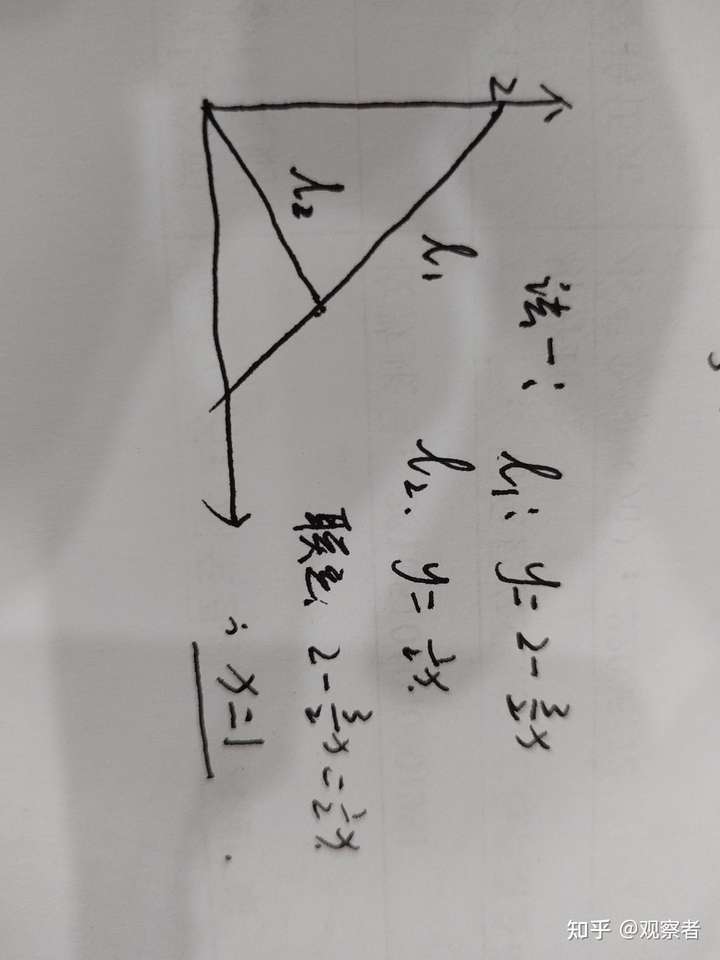 2
l₁
l₂
法一: l₁: y=2-3/2x
l₂. y=1/2x.
联立: 2-3/2x=1/2x
∴ x=1.
知乎 @观察者